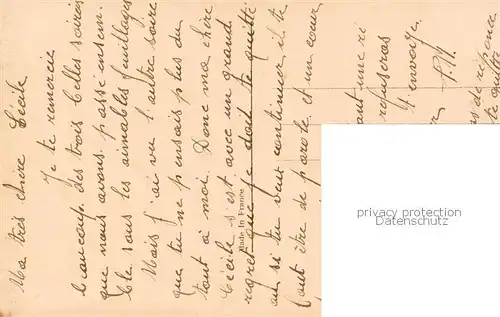 Ma très chère Cécile
Je te remercie
beaucoup des trois belles soirées
que nous avons passé ensem-
ble sous les aimables feuillages
Mais j'ai vu l'autre soir
que tu ne pensais plus du
tout à moi. Donc ma chère
Cécile s'est avec un grand
regret que je dois te quitté
ou si tu veut continuer il te
faut être de parole et un cœur
refuseras
t'envoye
pas de réponse
Made in France
phot. Validierungsdatei
phot. Validierungsdatei